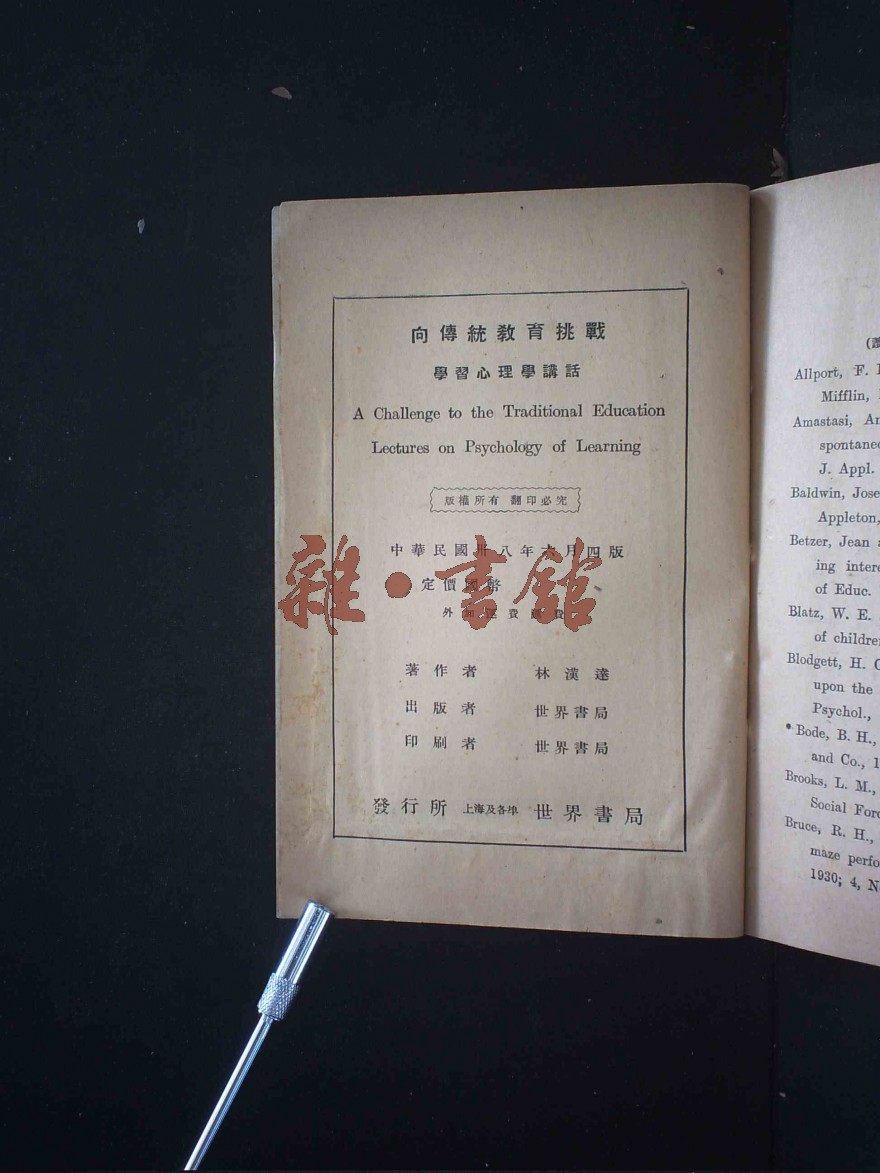 向傳統教育挑戰
學習心理學講話
A Challenge to the Traditional Education
Lectures on Psychology of Learning
版權所有 翻印必究
中華民國卅八年六月四版
定價國幣
外加運費匯費
著作者 林漢達
出版者 世界書局
印刷者 世界書局
發行所 上海及各埠 世界書局
雜·書館
Allport, F.
Mifflin,
Amastasi,
J. Appl.
Baldwin,
Appleton,
Betzer, Jean
of Educ.
Blatz, W. E.
Blodgett, H.
upon the
Psychol.,
Bode, B. H.,
and Co.,
Brooks, L. M.,
Social
Bruce, R. H.,
maze
1930; 4,